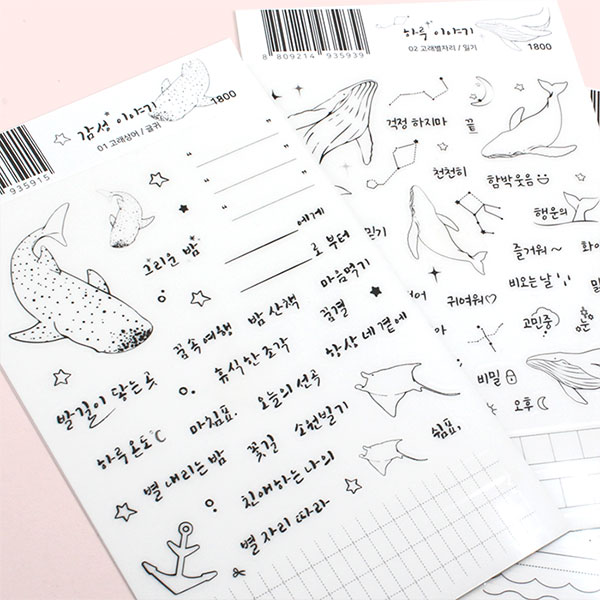 감성 이야기
01 고래상어 / 글귀
1800
935915
에게
로 부터
그리운 밤
마음먹기
밤 산책
꿈결
꿈속여행
휴식 한 조각
항상 네 곁에
발길이 닿는 곳
오늘의 선곡
마침표.
하루 온도℃
소원빌기
꽃길
쉼표,
별 내리는 밤
친애하는 나의
별 자리 따라
하루 이야기
02 고래별자리 / 일기
1800
8 809214 935939
걱정 하지마
끝
천천히
함박웃음
행운의
믿기
즐거워~
화이
비오는 날
귀여워♡
고민중
비밀
오후